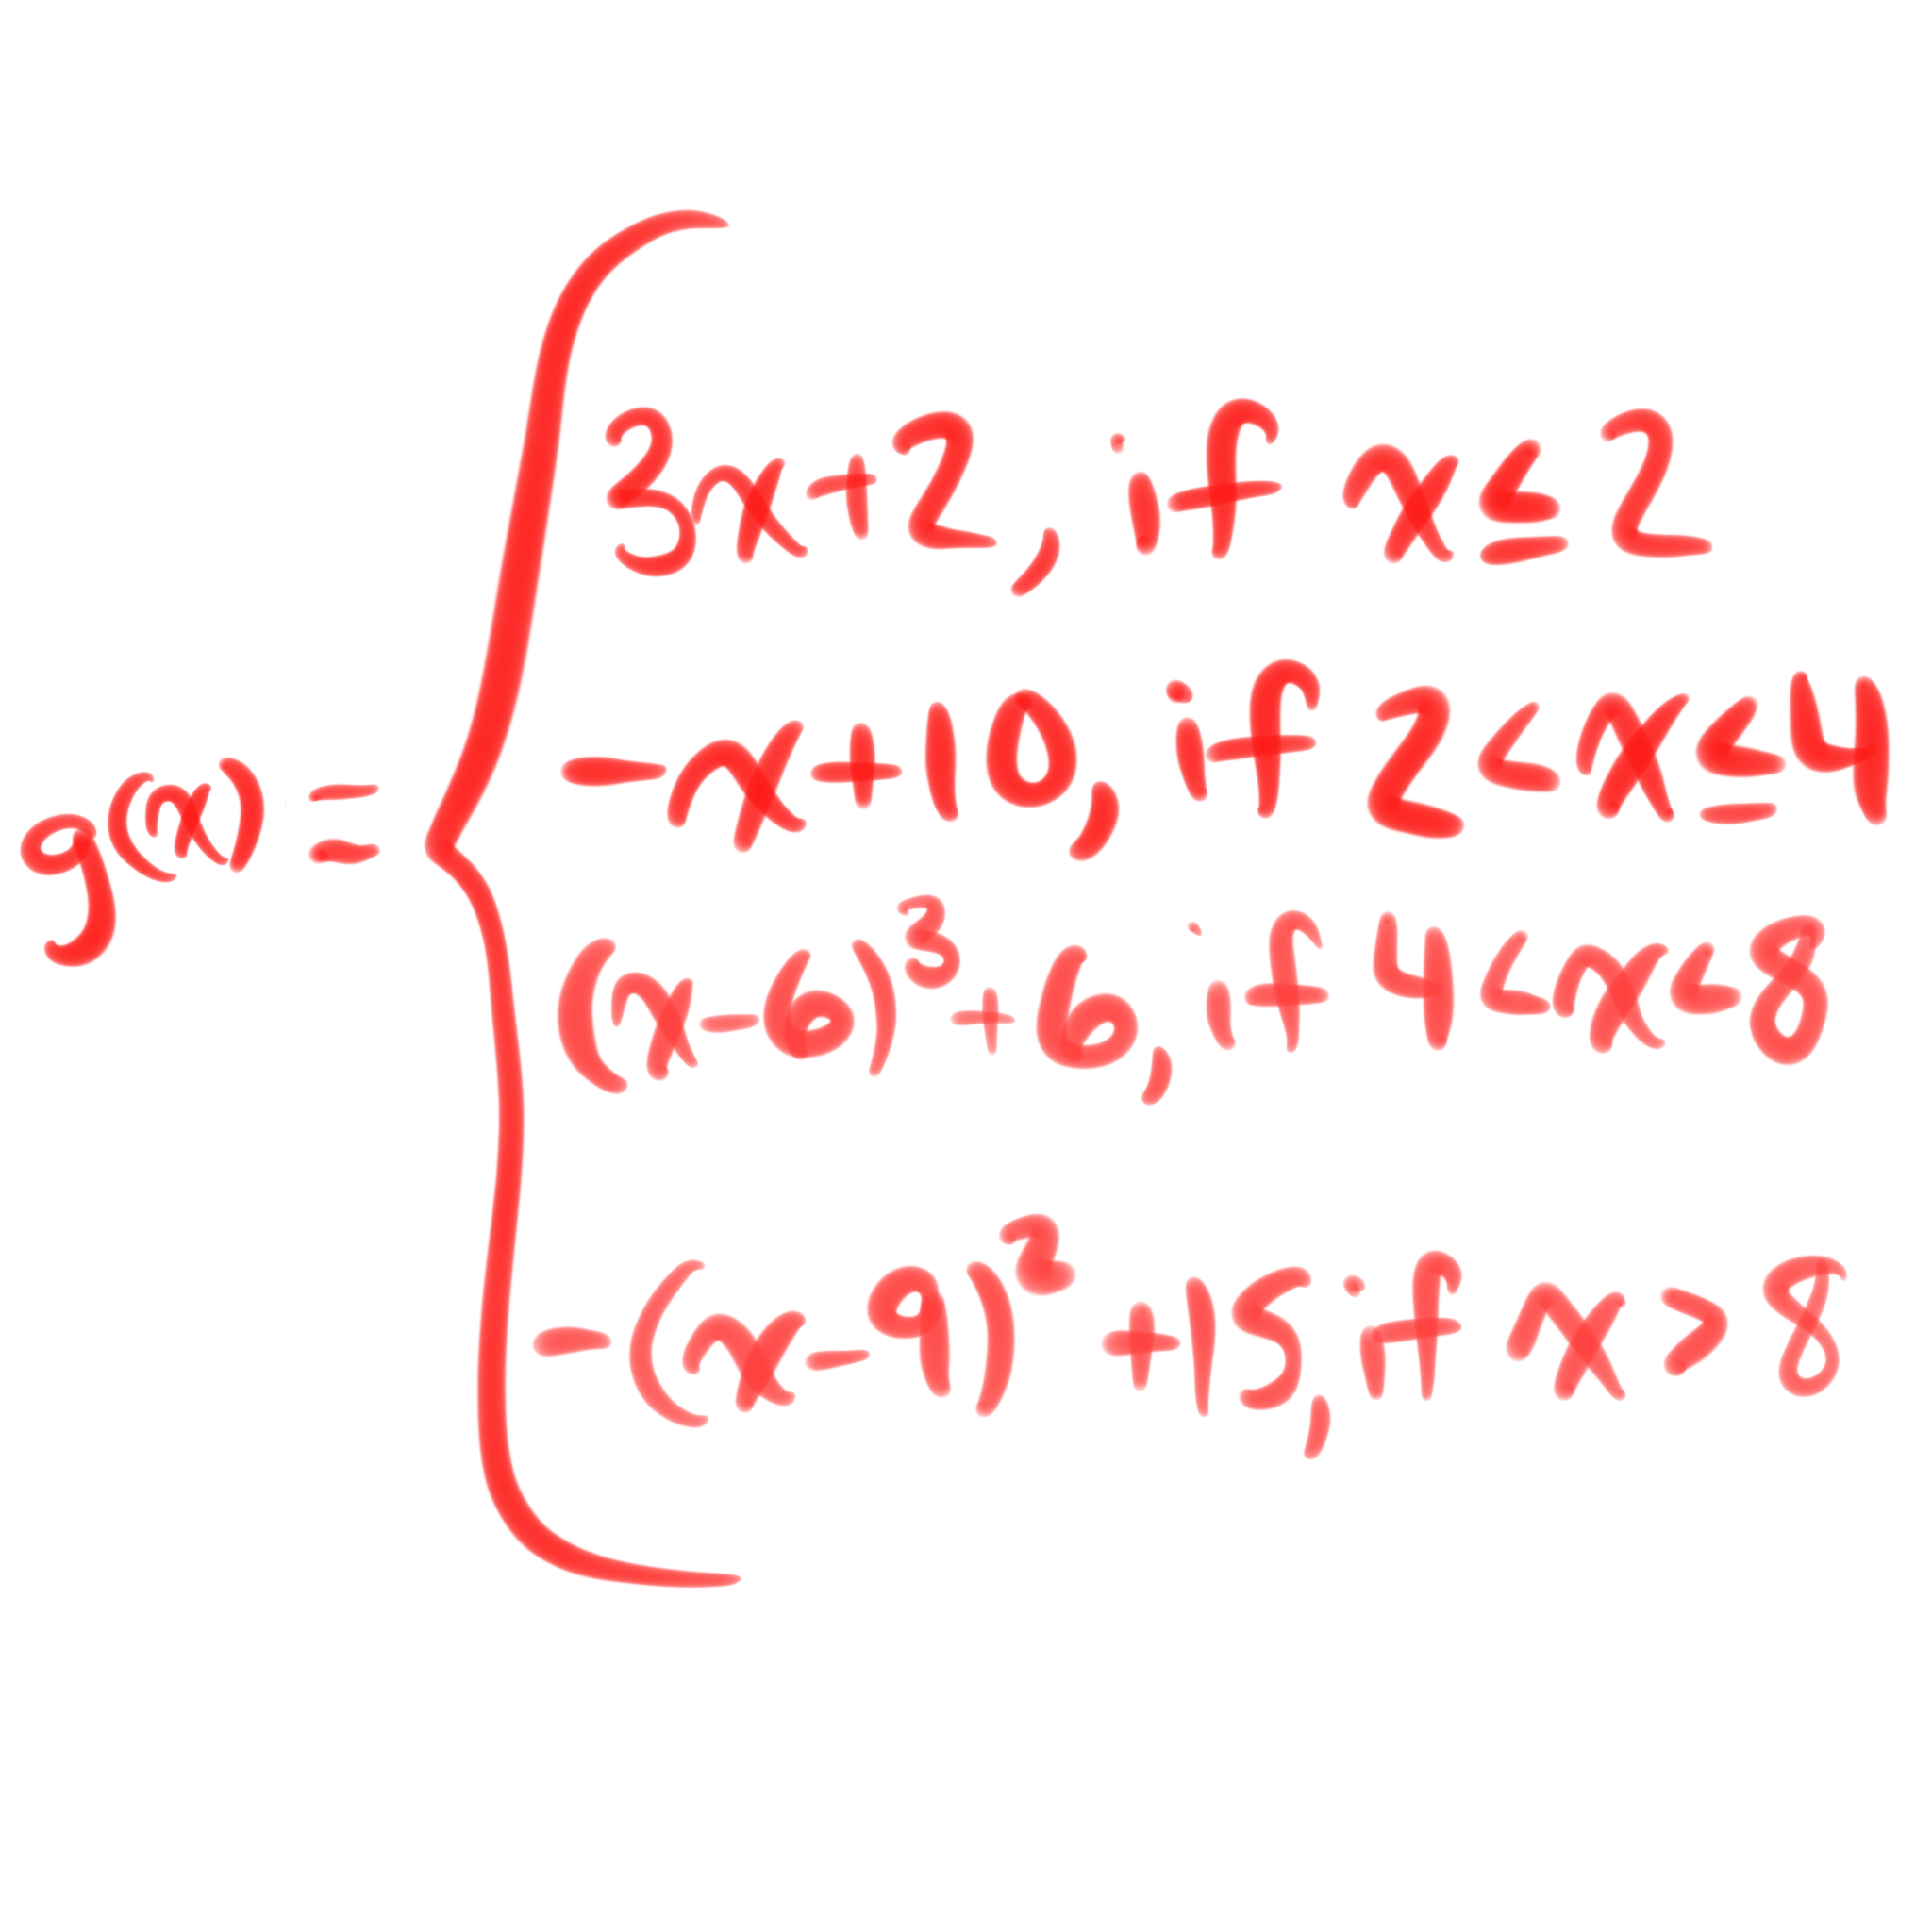 g(x) = {
3x+2, if x≤2
-x+10, if 2<x≤4
(x-6)³+6, if 4<x<8
-(x-9)²+15, if x>8